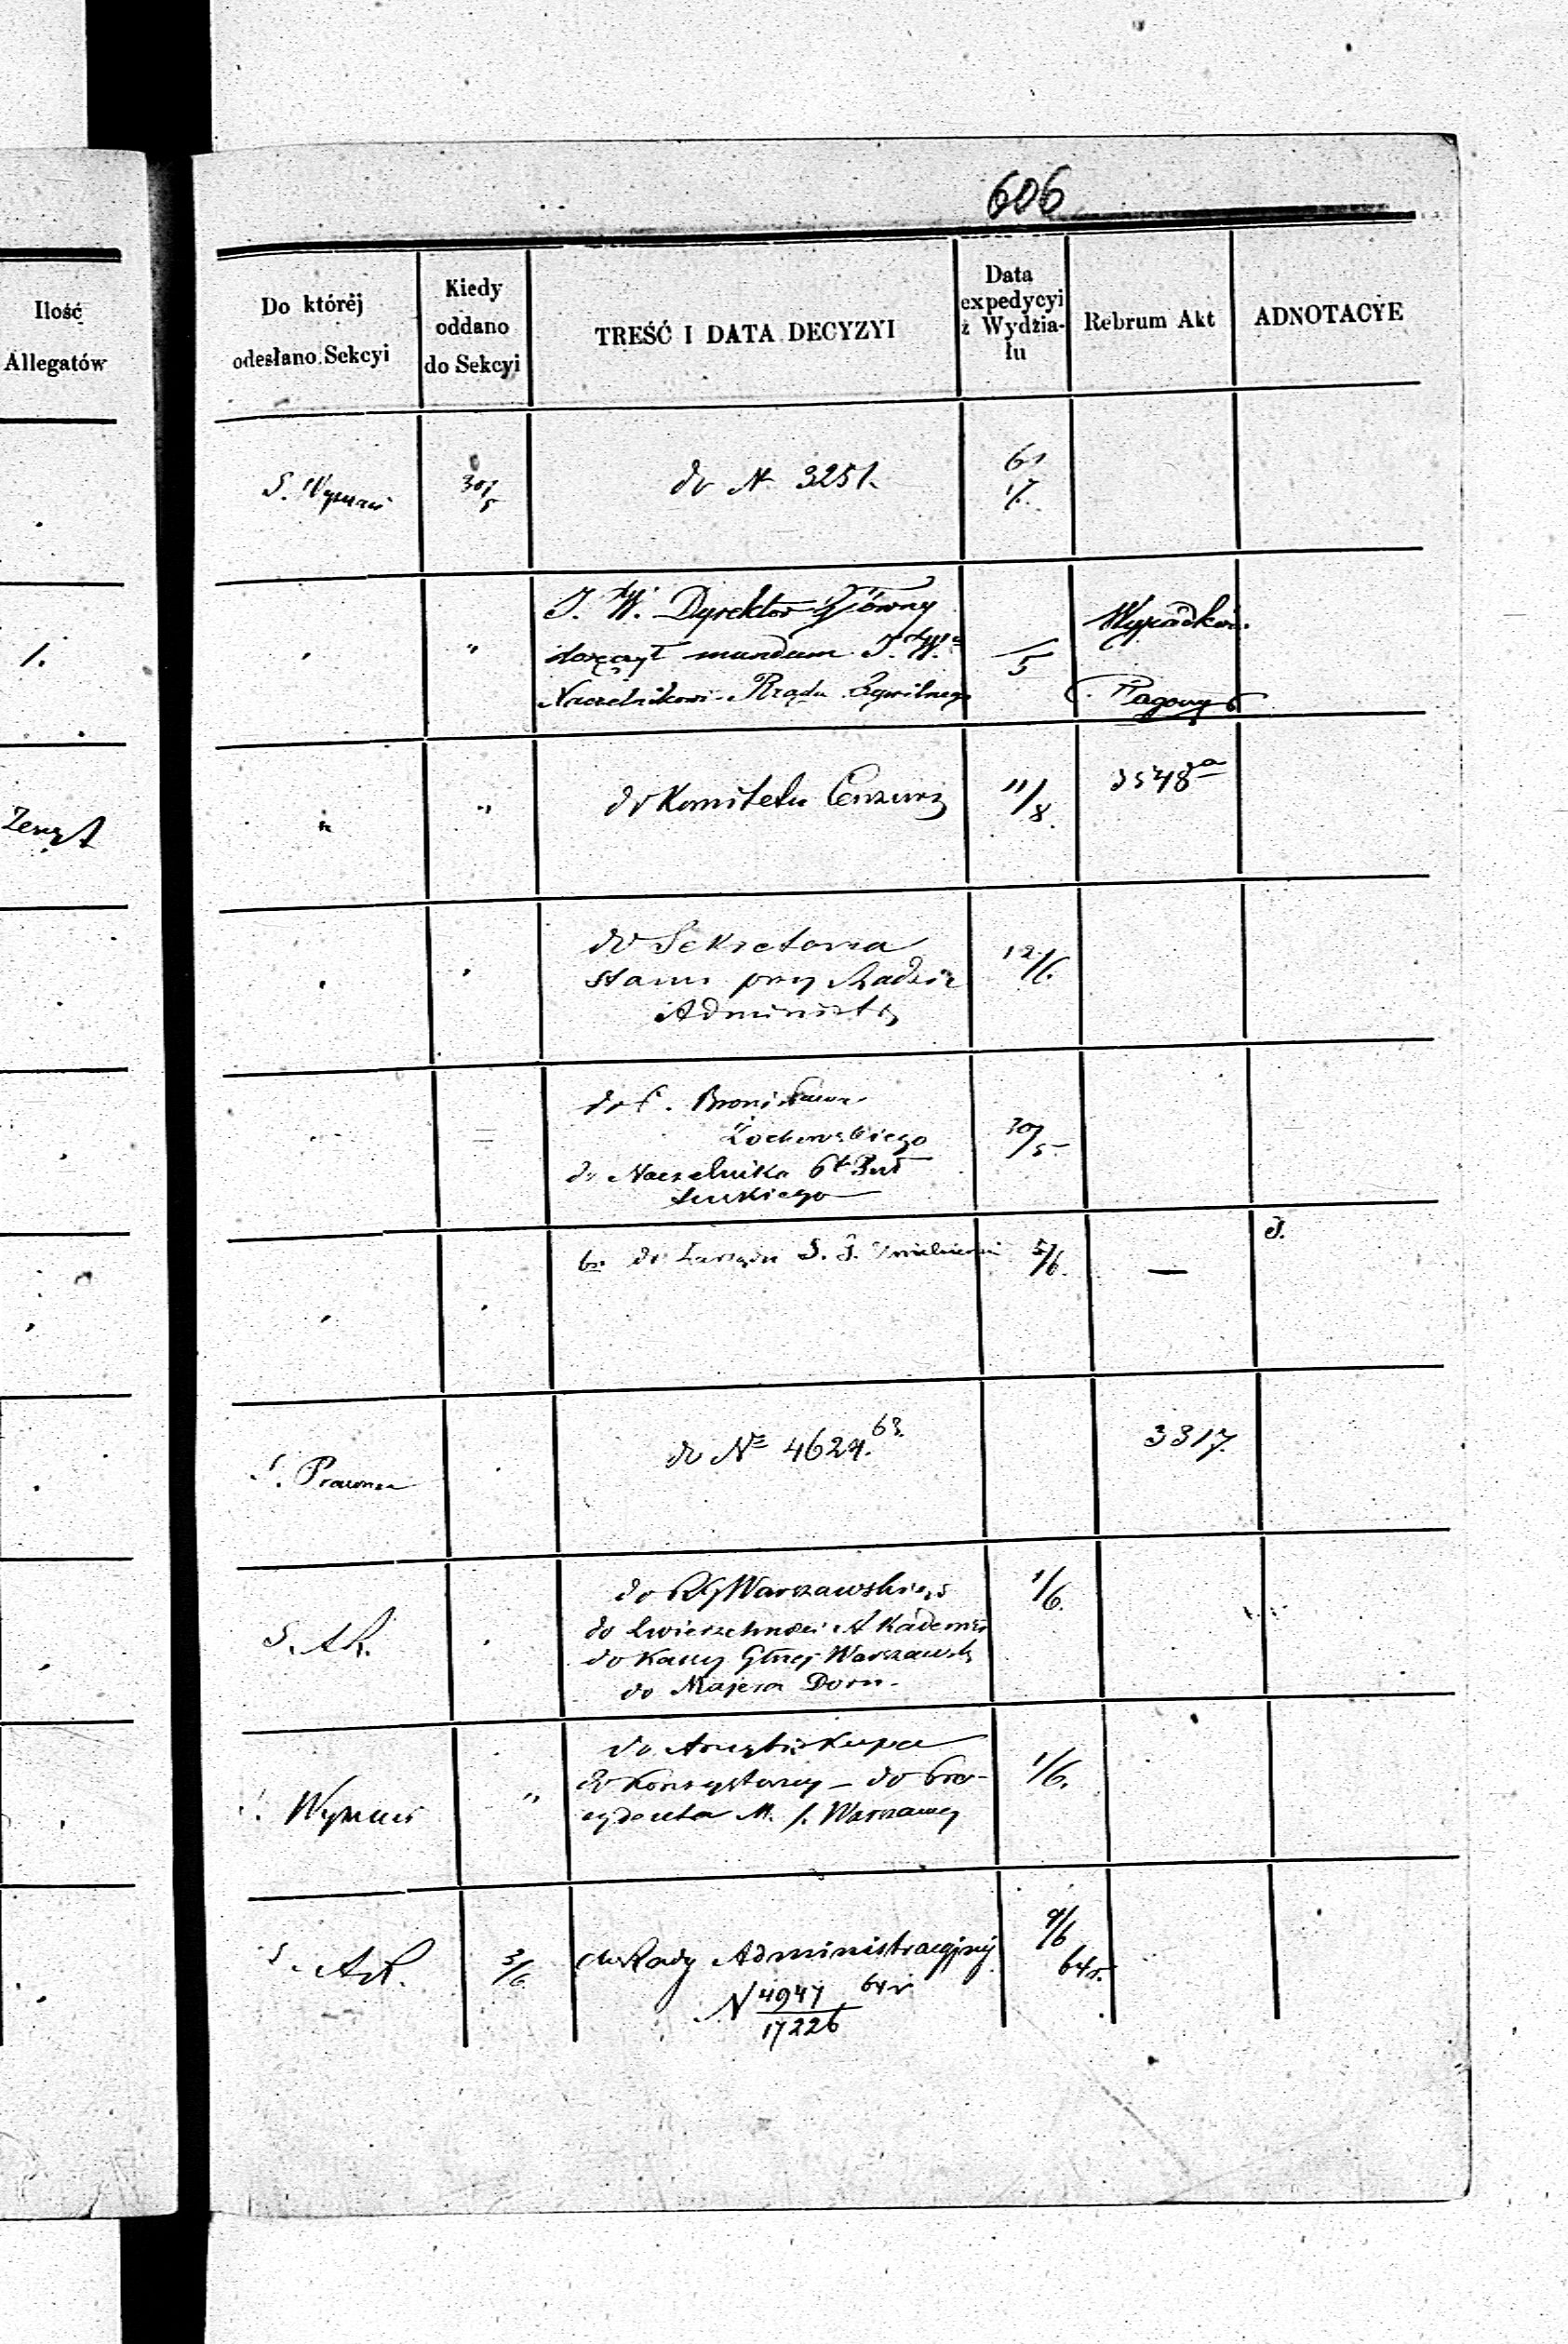 606
Ilość
Allegatów
Do któréj
odesłano Sekcyi
Kiedy
oddano
do Sekcyi
TREŚĆ I DATA DECYZYI
Data
expedycyi
z Wydzia-
łu
Rebrum Akt
ADNOTACYE
S. Wyznań
30/5
do N 3251.
1.
"
"
J. W. Dyrektor Główny
doręczył mundum J. W.
Naczelnikowi Rządu Cywilnego
/5
Zeszyt
"
"
do Komitetu Cenzury
11/8
3548a
do Sekretarza
Stanu przy Radzie
Administr
12/6.
do P. Bronisława
Żochowskiego
do Naczelnika
30/5
do Zarządu S. J.
5/6.
—
S. Prawna
do No 4624. 63.
3317.
S. AR.
do RG Warszawskiego
do Zwierzchności Akademii
do Kassy Głnej Warszawsk
do Majera Dorn.
1/6.
S. Wyznań
"
do Arcybiskupa
do Konsystorzy - do Pre-
zydenta M. S. Warszawy
1/6.
S. AR.
3/6
do Rady Administracyjnej
N 4947 64 r
17226
9/6
64 r.